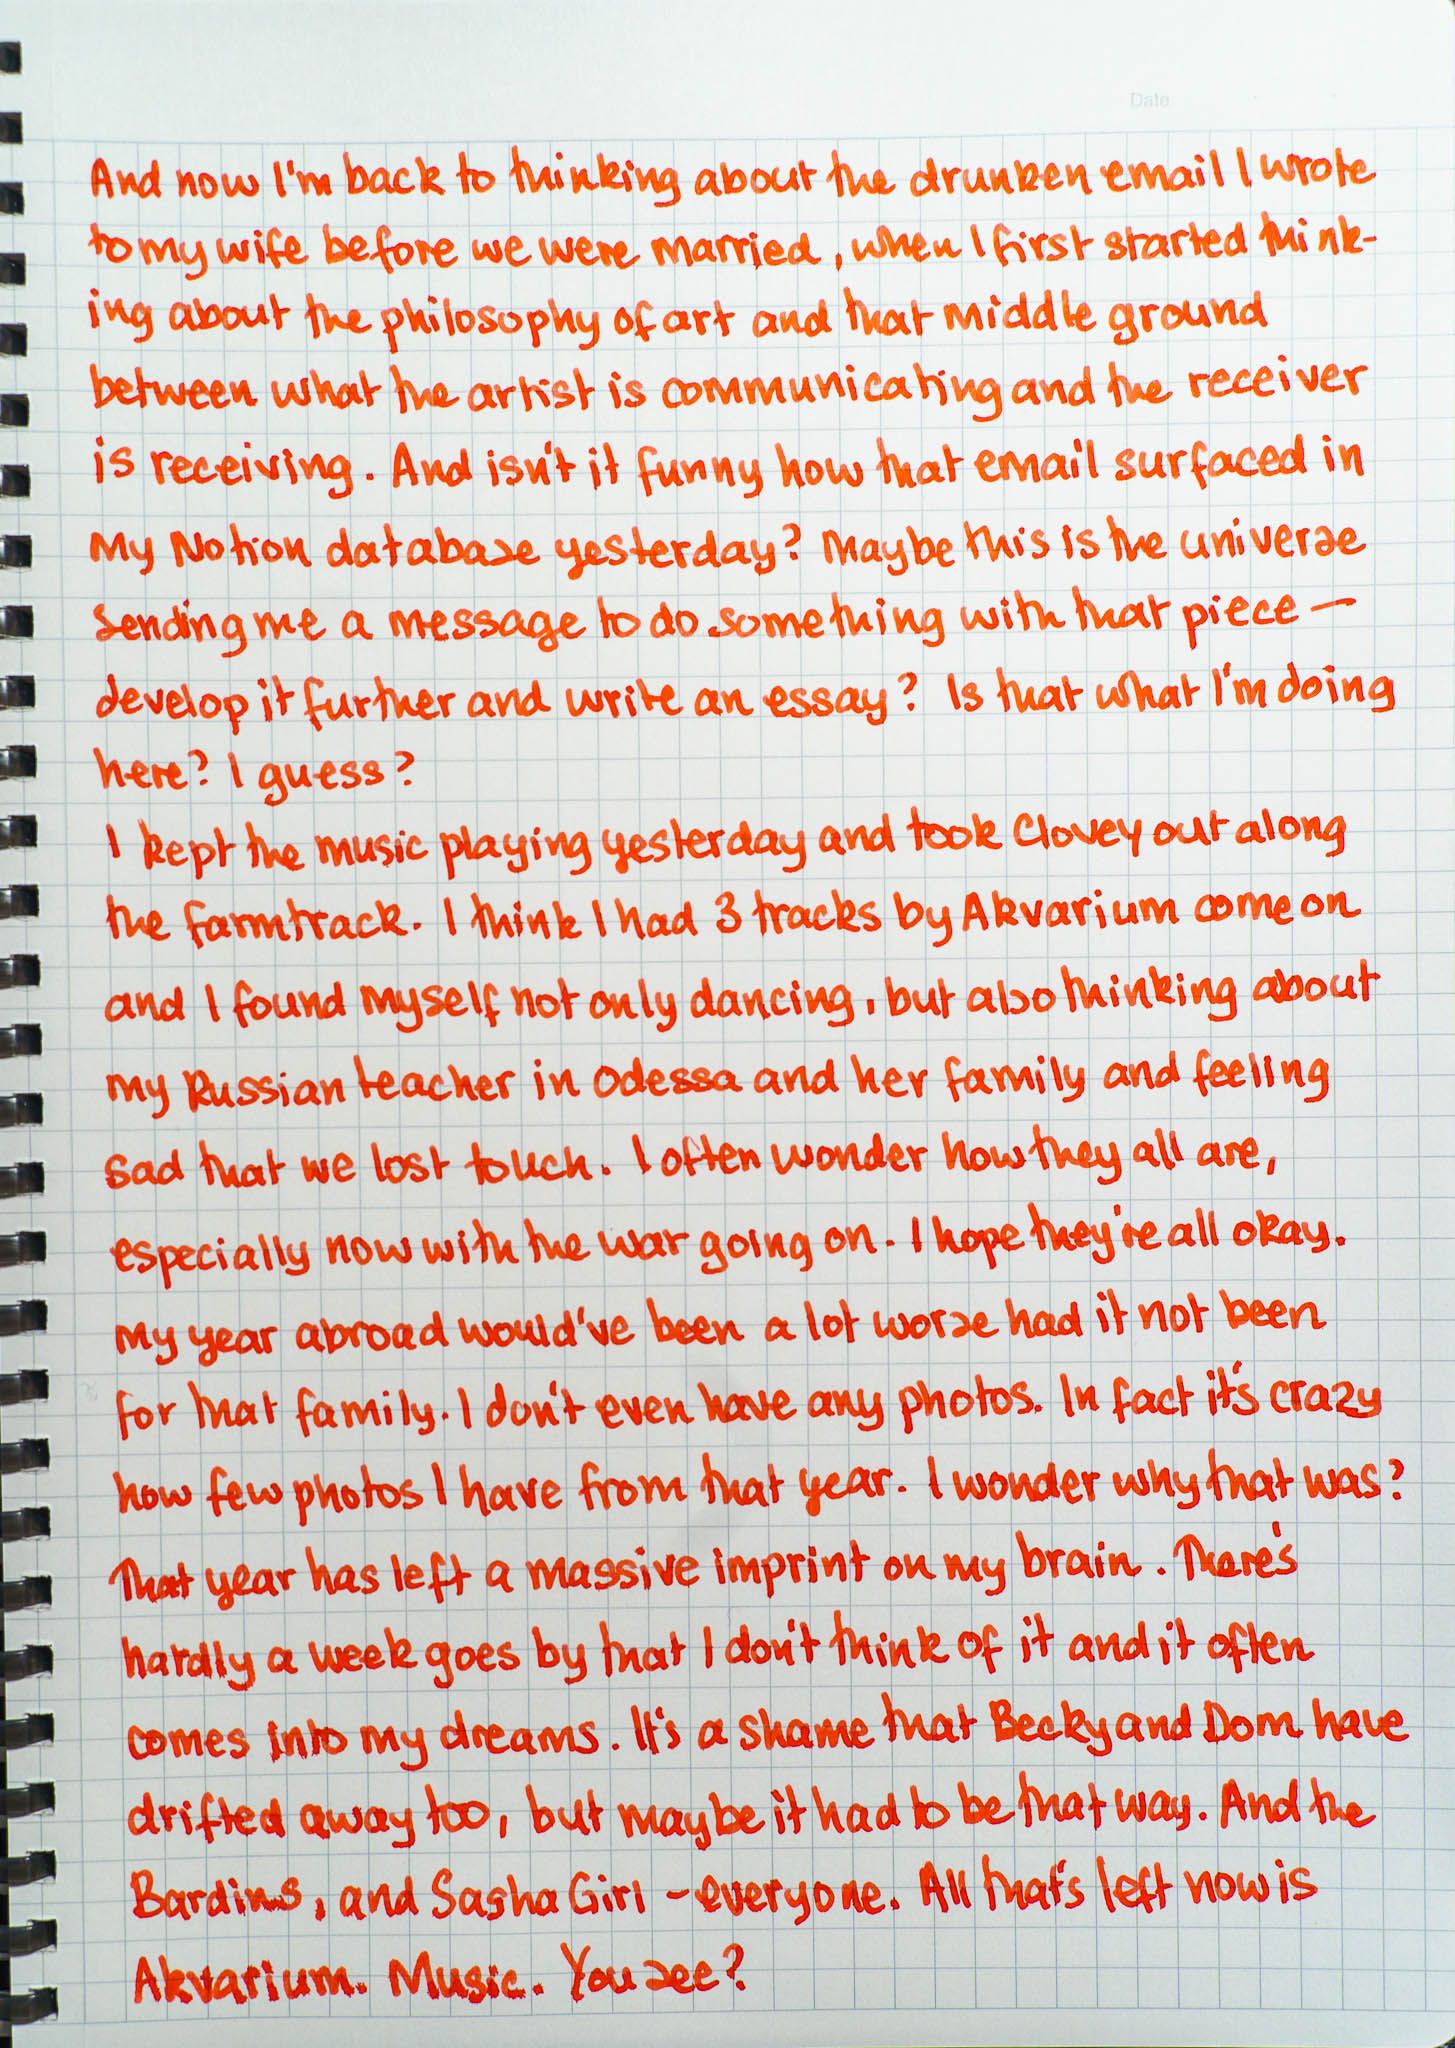 Date
And now I'm back to thinking about the drunken email I wrote
to my wife before we were married, when I first started think-
ing about the philosophy of art and that middle ground
between what the artist is communicating and the receiver
is receiving. And isn't it funny how that email surfaced in
my Notion database yesterday? Maybe this is the universe
sending me a message to do something with that piece —
develop it further and write an essay? Is that what I'm doing
here? I guess?
I kept the music playing yesterday and took Clovey out along
the farmtrack. I think I had 3 tracks by Akvarium come on
and I found myself not only dancing, but also thinking about
my Russian teacher in Odessa and her family and feeling
sad that we lost touch. I often wonder how they all are,
especially now with the war going on. I hope they're all okay.
My year abroad would've been a lot worse had it not been
for that family. I don't even have any photos. In fact it's crazy
how few photos I have from that year. I wonder why that was?
That year has left a massive imprint on my brain. There's
hardly a week goes by that I don't think of it and it often
comes into my dreams. It's a shame that Becky and Dom have
drifted away too, but maybe it had to be that way. And the
Bardins, and Sasha Girl – everyone. All that's left now is
Akvarium. Music. You see?